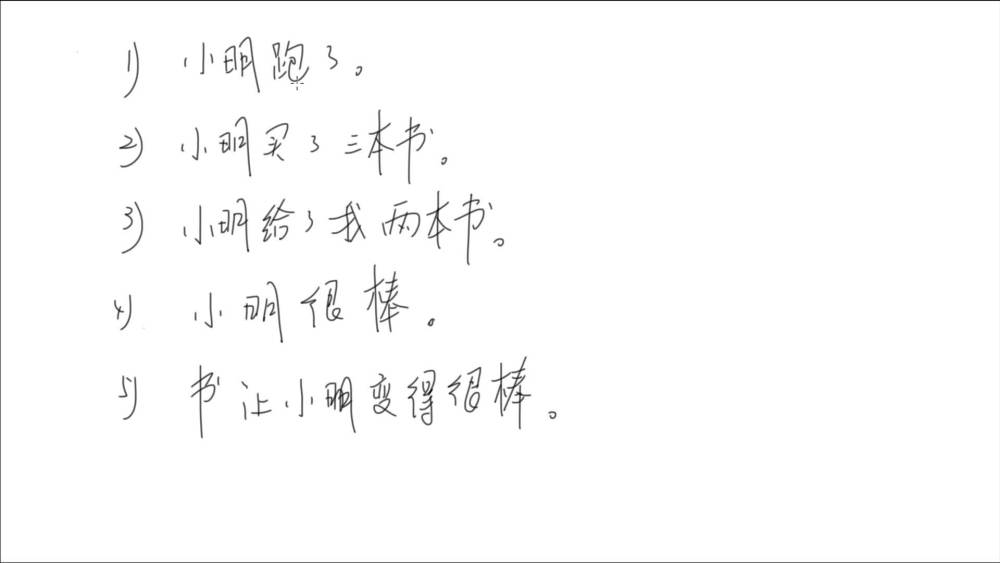 1) 小明跑了。
2) 小明买了三本书。
3) 小明给了我两本书。
4) 小明很棒。
5) 书让小明变得很棒。